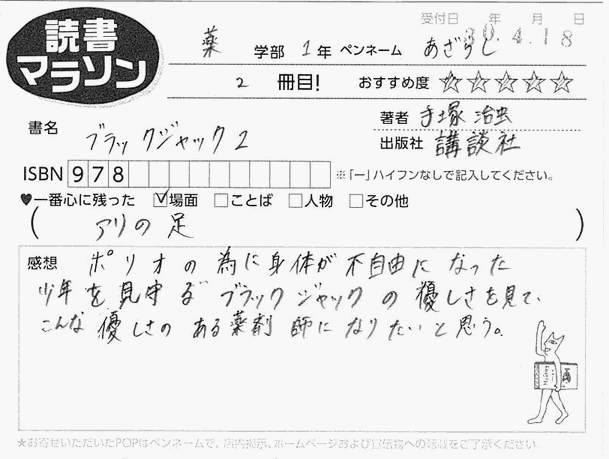 読書
マラソン
受付日 年 月 日
30.4.18
薬 学部 1年 ペンネーム あざらし
2 冊目! おすすめ度 ☆☆☆☆☆
書名 ブラックジャック2
著者 手塚治虫
出版社 講談社
ISBN 978 ※「ー」ハイフンなしで記入してください。
♥一番心に残った ☑場面 □ことば □人物 □その他
(アリの足)
感想 ポリオの為に身体が不自由になった
少年を見守るブラックジャックの優しさを見て、
こんな優しさのある薬剤師になりたいと思う。
★お寄せいただいたPOPはペンネームで、店内掲示、ホームページおよび宣伝物への掲載をご了承ください。